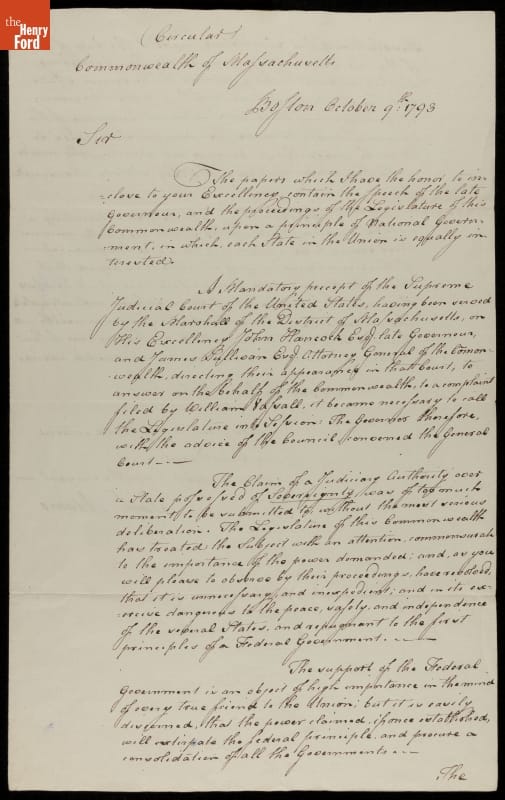 the
Henry
Ford
(Circular)
Commonwealth of Massachusetts
Boston October 9.th 1793
Sir
The papers which I have the honor, to in-
-close to your Excellency, contain the Speech of the late
Governour, and the proceedings of the Legislature of this
Commonwealth, upon a principle of National Govern-
-ment, in which, each State in the Union is equally in
terested.
A Mandatory precept of the Supreme
Judicial Court of the United States, having been served
by the Marshall of the District of Massachusetts, on
His Excellency John Hancock Esq.r late Governour,
and James Sullivan Esq.r Attorney General of the Common-
-wealth, directing their appearance in that Court, to
answer on the behalf of the Commonwealth, to a complaint
filed by William Vassall, it became necessary to call
the Legislature into Session: The Governor therefore,
with the advice of the Council convened the General
Court—
The Claim of a Judiciary Authority over
a State possessed of Sovereignty was of too much
moment to be submitted to, without the most serious
deliberation. The Legislature of this Commonwealth
has treated the Subject with an attention, commensurate
to the importance of the power demanded; and, as you
will please to observe by their proceedings, have resolved,
that it is unnecessary, and inexpedient; and in its ex-
-ercise dangerous to the peace, safety, and independence
of the several States, and repugnant to the first
principles of a Federal Government.—
The support of the Federal
Government is an object of high importance in the mind
of every true friend to the Union; but it is easily
discerned, that the power claimed, if once established,
will extirpate the federal principle, and procure a
consolidation of all the Governments—
The